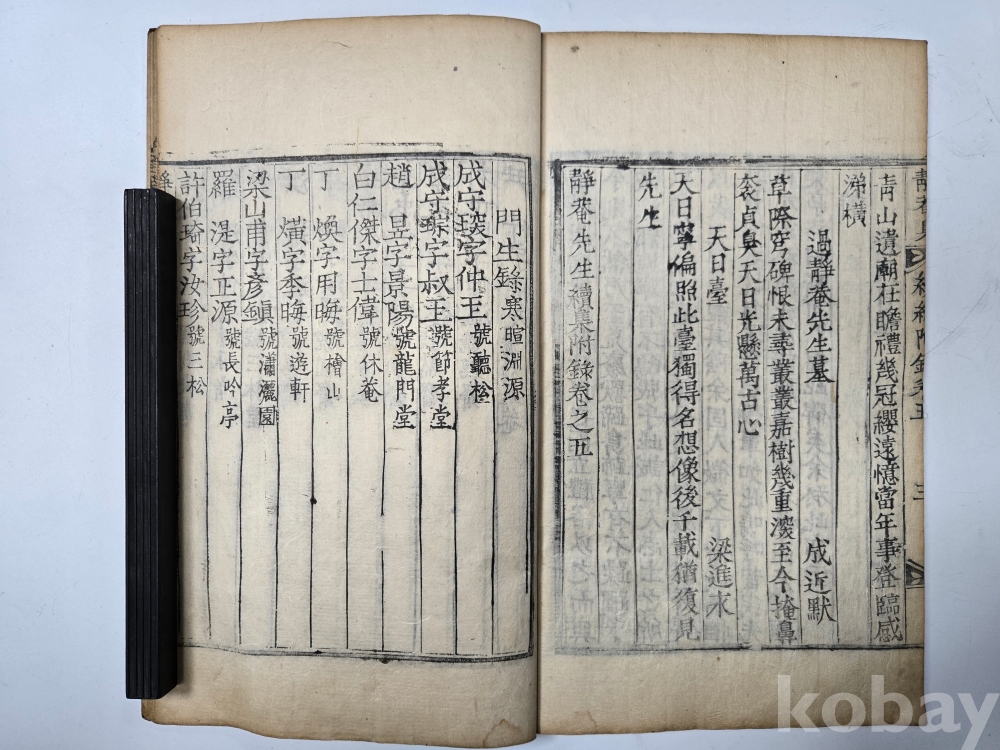 青山遺廟在瞻禮幾冠纓遠憶當年事登臨感
涕橫
過靜菴先生墓 成近默
草際穹碑恨未尋叢叢嘉樹幾重深至今掩鼻
衮貞臭天日光懸萬古心
天日臺 梁進永
大日寧偏照此臺獨得名想像後千載猶復見
先生
靜菴先生續集附錄卷之五
門生錄寒暄淵源
成守琰字仲玉號聽松
成守琮字叔玉號節孝堂
趙昱字景陽號龍門堂
白仁傑字士偉號休菴
丁煥字用晦號檜山
丁熿字季晦號遊軒
梁山甫字彥鎭號瀟灑園
羅湜字正源號長吟亭
許伯琦字汝珍號三松
kobay